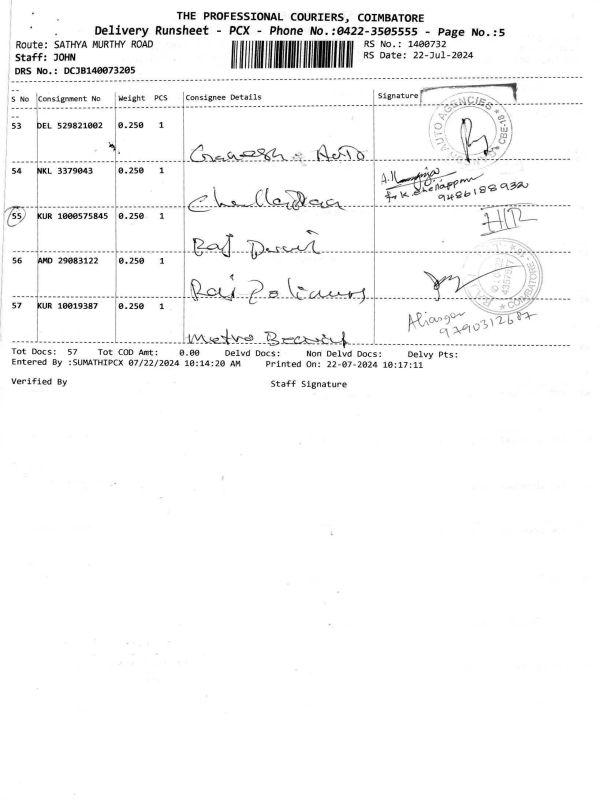 THE PROFESSIONAL COURIERS, COIMBATORE
Delivery Runsheet - PCX - Phone No.:0422-3505555 - Page No.:5
Route: SATHYA MURTHY ROAD RS No.: 1400732
Staff: JOHN RS Date: 22-Jul-2024
DRS No.: DCJB140073205
S No Consignment No Weight PCS Consignee Details Signature
53 DEL 529821002 0.250 1
AUTO AGENCIES * CBE-18
Ganesh Auto
54 NKL 3379043 0.250 1
9486188932
55 KUR 1000575845 0.250 1
Raj
56 AMD 29083122 0.250 1
COIMBATORE
Raj
57 KUR 10019387 0.250 1
9790312687
Metro
Tot Docs: 57 Tot COD Amt: 0.00 Delvd Docs: Non Delvd Docs: Delvy Pts:
Entered By :SUMATHIPCX 07/22/2024 10:14:20 AM Printed On: 22-07-2024 10:17:11
Verified By Staff Signature